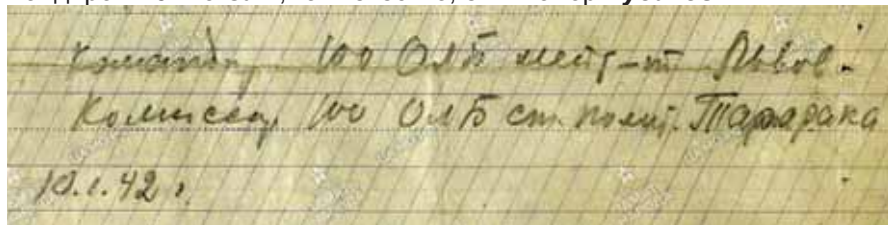 Командир 100 ОЛБ лейт-т Львов.
Комиссар 100 ОЛБ ст. полит. Тарарака
10.1.42 г.